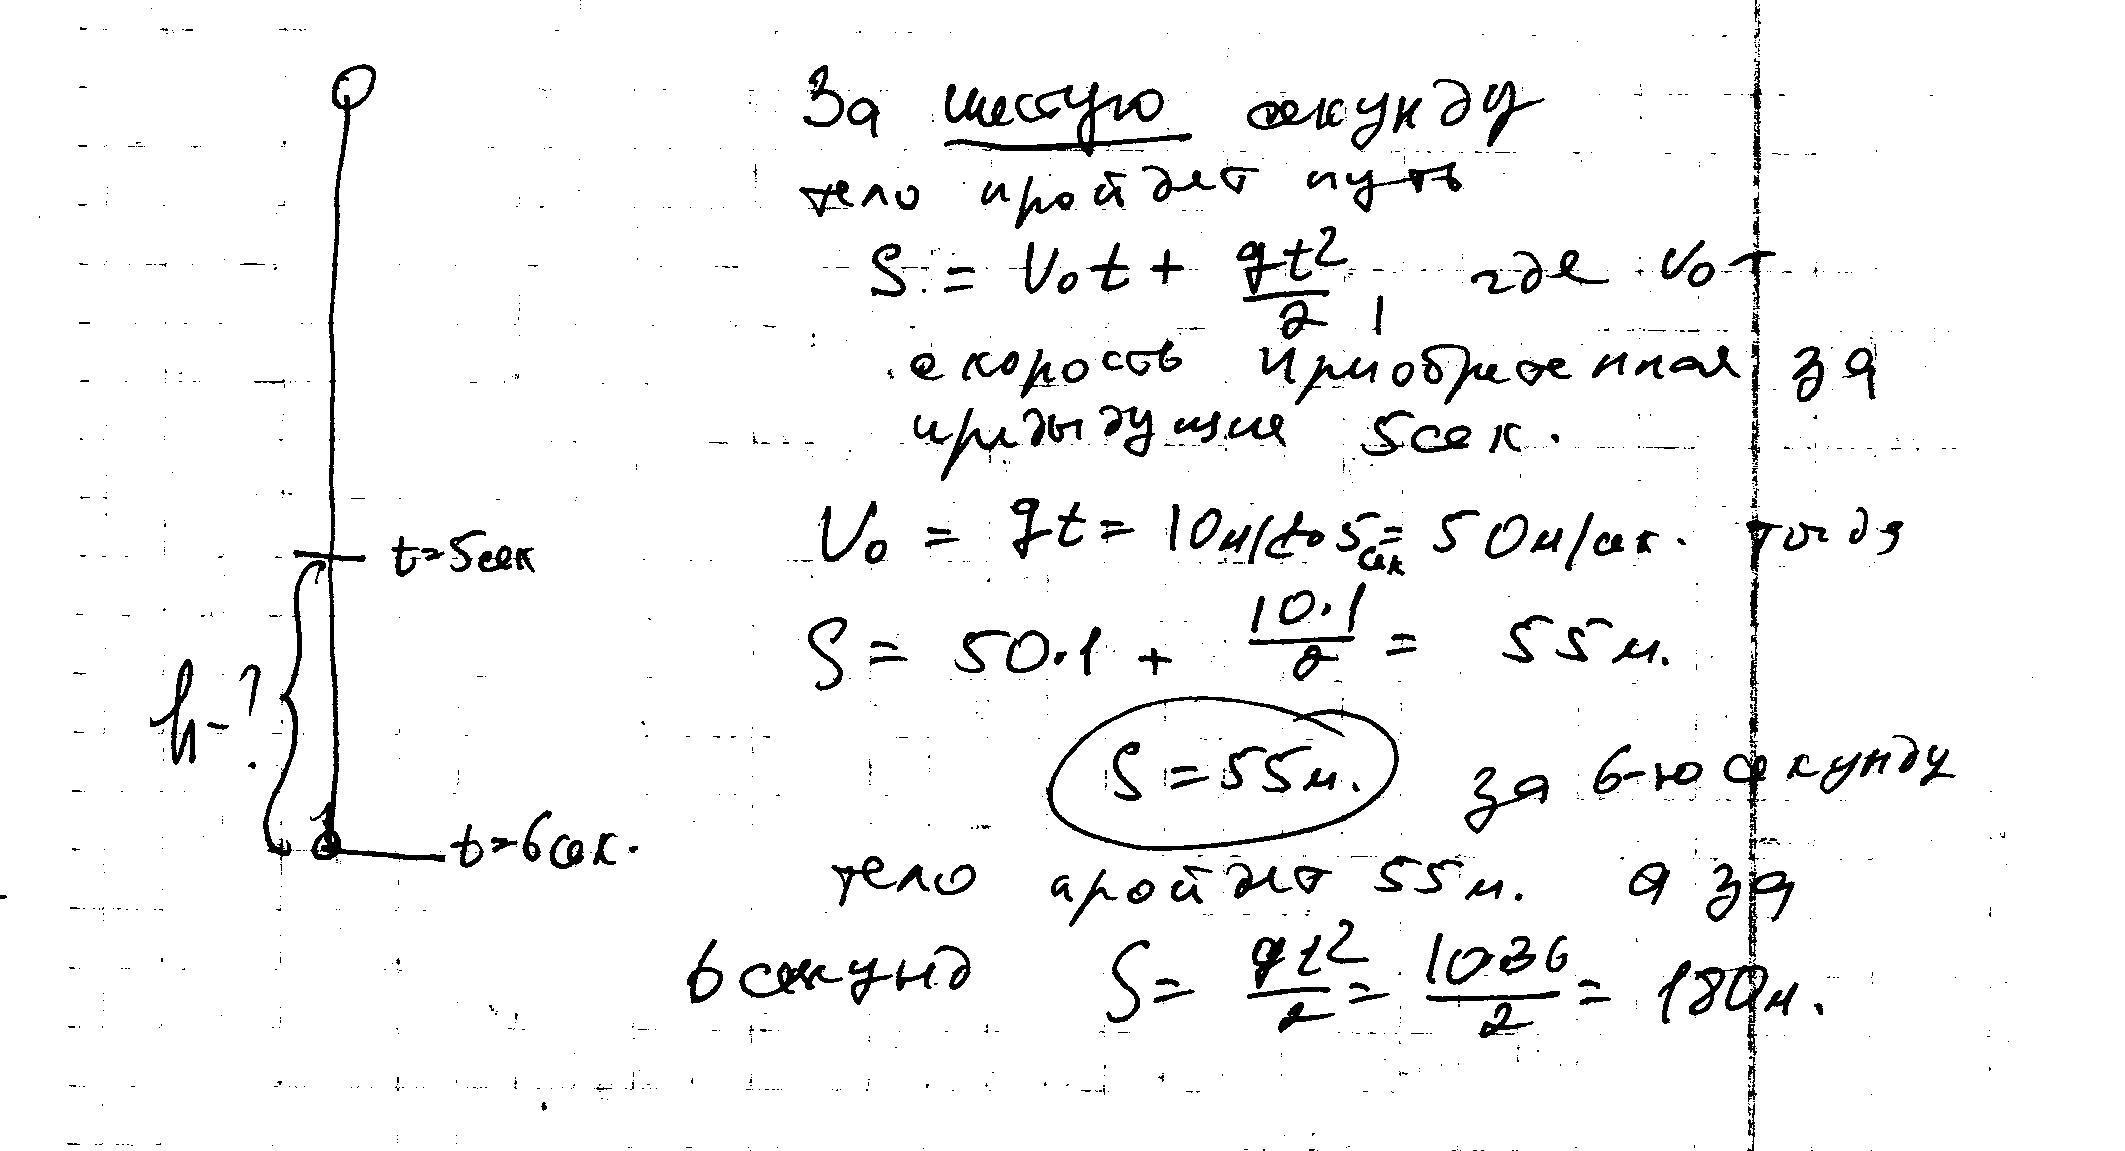 За шестую секунду
тело пройдет путь
S = V₀t + gt²/2, где V₀ -
скорость приобретенная за
предыдущие 5 сек.
t=5сек
V₀ = gt = 10м/с² · 5 сек = 50м/сек. тогда
S = 50·1 + 10·1/2 = 55 м.
h-?
S = 55м. за 6-ю секунду
t=6сек.
тело пройдет 55м. а за
6 секунд S = gt²/2 = 10·36/2 = 180м.